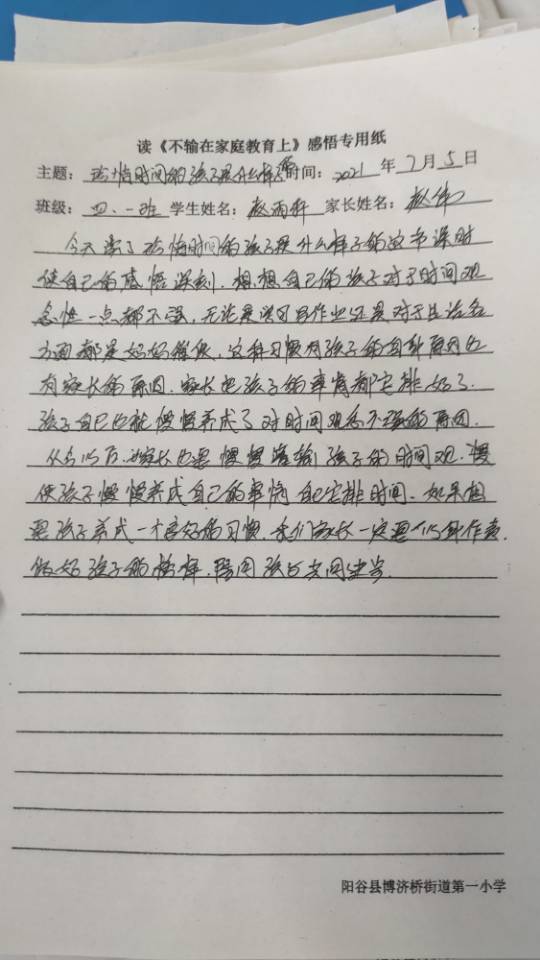 读《不输在家庭教育上》感悟专用纸
主题：珍惜时间的孩子是什么样 时间：2021年7月5日
班级：四、一班 学生姓名：赵雨 家长姓名：赵伟
今天学了珍惜时间的孩子是什么样子的这节课时
使自己的感悟深刻.想想自己的孩子对于时间观
念性一点都不强，无论是学习写作业还是对于生活各
方面都是 这种习惯有孩子的自身原因也
有家长的原因.家长把孩子的事情都安排好了.
孩子自己也就慢慢养成了对时间观念不强的原因.
从今以后.家长也要慢慢灌输孩子的时间观.慢
使孩子慢慢养成自己的事情自己安排时间.如果想
要孩子养成一个良好的习惯.我们家长一定要以身作责.
做好孩子的榜样.陪同孩子共同进步.
阳谷县博济桥街道第一小学